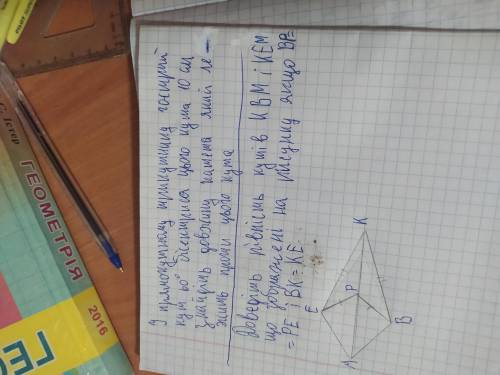 У прямокутному трикутнику гострий
кут 60° бісектриса цього кута 10 см
Знайдіть довжину катета який ле-
жить проти цього кута
Доведіть рівність кутів KBM і KEM
що зображені на рисунку якщо BP=
=PE і BK=KE
E
K
P
A
B
С. Істер
ГЕОМЕТРІЯ
2016
ГЕО